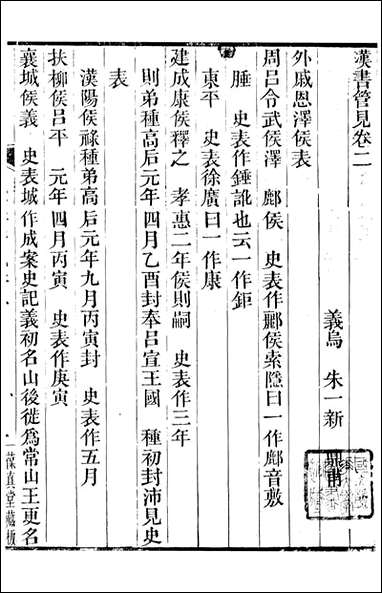 漢書管見卷二
義烏 朱一新 鼎甫
外戚恩澤侯表
周呂令武侯澤 酈侯 史表作酈侯索隱曰一作鄜音敷
腄 史表作錘訛也云一作鉅
東平 史表徐廣曰一作康
建成康侯釋之 孝惠二年侯則嗣 史表作三年
則弟種高后元年四月乙酉封奉呂宣王國 種初封沛見史
表
漢陽侯祿種弟高后元年九月丙寅封 史表作五月
扶柳侯呂平 元年四月丙寅 史表作庚寅
襄城侯義 史表城作成案史記義初名山後徙爲常山王更名
葆真堂藏板